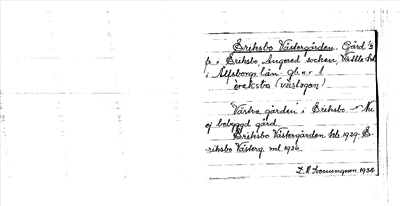 Eriksbo Västergården. Gård 1/2
p. i Eriksbo, Angered socken, Vättle hd
i Älfsborgs län. Gb. n:r 1.
èraksbo (västogan)
Västra gården i Eriksbo. - Nu
ej bebyggd gård.
Eriksbo Västergården Jeb. 1929. E-
riksbo Västerg. ml 1936
1934